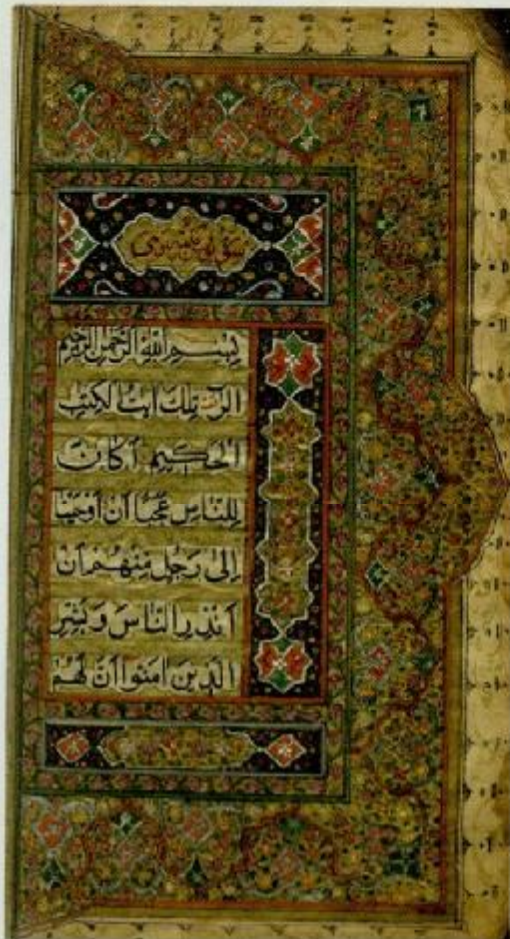 بِسْمِ اللهِ الرَّحْمٰنِ الرَّحِيمِ
الٓرٰ تِلْكَ اٰيٰتُ الْكِتٰبِ
الْحَكِيمِ اَكَانَ
لِلنَّاسِ عَجَبًا اَنْ اَوْحَيْنَا
اِلٰى رَجُلٍ مِنْهُمْ اَنْ
اَنْذِرِ النَّاسَ وَبَشِّرِ
الَّذِينَ اٰمَنُوا اَنَّ لَهُمْ